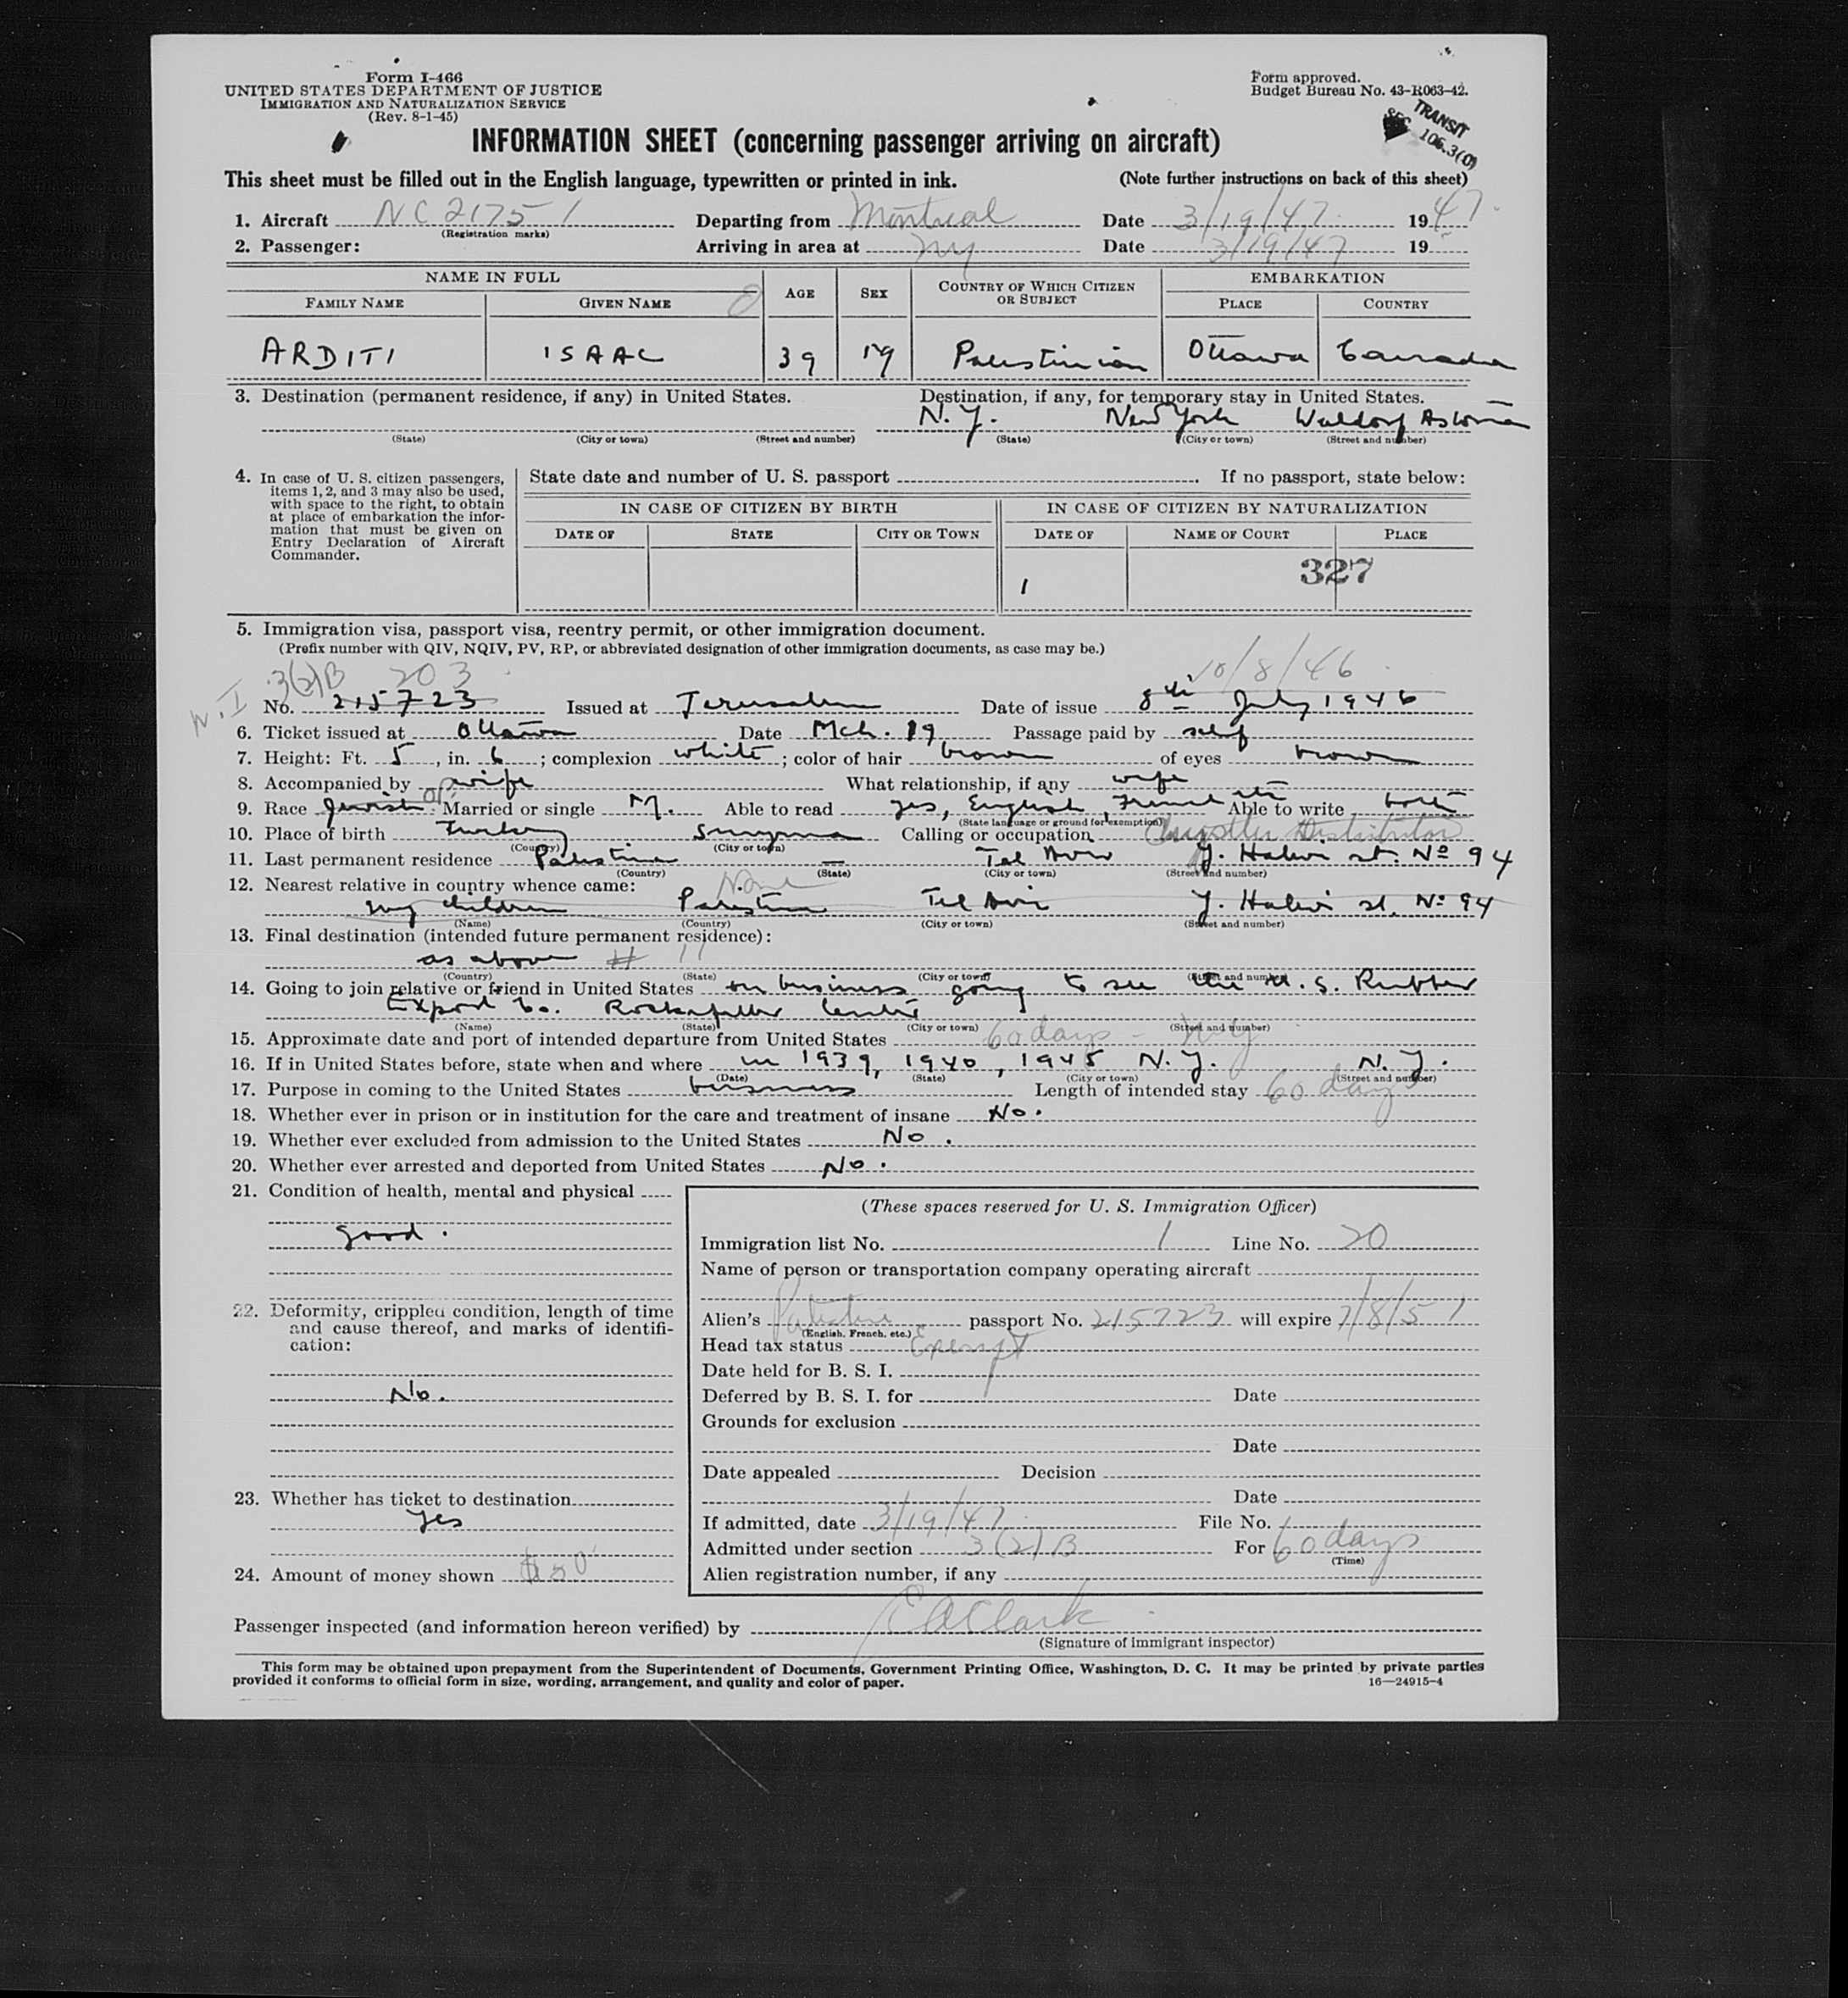 Form I-466
UNITED STATES DEPARTMENT OF JUSTICE
IMMIGRATION AND NATURALIZATION SERVICE
(Rev. 8-1-45)
Form approved.
Budget Bureau No. 43-R063-42.
TRANSIT
SEC 106.3(0)
INFORMATION SHEET (concerning passenger arriving on aircraft)
This sheet must be filled out in the English language, typewritten or printed in ink. (Note further instructions on back of this sheet)
1. Aircraft NC 21751 Departing from Montreal Date 3/19/47 1947
(Registration marks)
2. Passenger: Arriving in area at NY Date 3/19/47 19
NAME IN FULL AGE SEX COUNTRY OF WHICH CITIZEN OR SUBJECT EMBARKATION
FAMILY NAME GIVEN NAME PLACE COUNTRY
ARDITI ISAAC 39 M Palestinian Ottawa Canada
3. Destination (permanent residence, if any) in United States. Destination, if any, for temporary stay in United States.
N.Y. New York Waldorf Astoria
(State) (City or town) (Street and number) (State) (City or town) (Street and number)
4. In case of U. S. citizen passengers, items 1, 2, and 3 may also be used, with space to the right, to obtain at place of embarkation the information that must be given on Entry Declaration of Aircraft Commander.
State date and number of U. S. passport . If no passport, state below:
IN CASE OF CITIZEN BY BIRTH IN CASE OF CITIZEN BY NATURALIZATION
DATE OF STATE CITY OR TOWN DATE OF NAME OF COURT PLACE
327
5. Immigration visa, passport visa, reentry permit, or other immigration document.
(Prefix number with QIV, NQIV, PV, RP, or abbreviated designation of other immigration documents, as case may be.)
3(2)B 203 10/8/46
No. 215723 Issued at Jerusalem Date of issue 8th July 1946
6. Ticket issued at Ottawa Date Mch. 19 Passage paid by self
7. Height: Ft. 5, in. 6; complexion white; color of hair brown of eyes brown
8. Accompanied by wife What relationship, if any wife
9. Race Jewish Married or single M. Able to read yes, English, French Able to write both
(State language or ground for exemption)
10. Place of birth Turkey Smyrna Calling or occupation Chrystler Distributor
(Country) (City or town)
11. Last permanent residence Palestine — Tel Aviv Y. Halevi st. No 94
(Country) (State) (City or town) (Street and number)
12. Nearest relative in country whence came: None
my children Palestine Tel Aviv Y. Halevi st. No 94
(Name) (Country) (City or town) (Street and number)
13. Final destination (intended future permanent residence):
as above # 11
(Country) (State) (City or town) (Street and number)
14. Going to join relative or friend in United States on business going to see the U.S. Rubber
Export Co. Rockafeller Center
(Name) (State) (City or town) (Street and number)
15. Approximate date and port of intended departure from United States 60 days - NY
16. If in United States before, state when and where in 1939, 1940, 1945 N.Y. N.Y.
(Date) (State) (City or town) (Street and number)
17. Purpose in coming to the United States business Length of intended stay 60 days
18. Whether ever in prison or in institution for the care and treatment of insane No.
19. Whether ever excluded from admission to the United States No.
20. Whether ever arrested and deported from United States No.
21. Condition of health, mental and physical
good.
22. Deformity, crippled condition, length of time and cause thereof, and marks of identification:
No.
23. Whether has ticket to destination
yes
24. Amount of money shown
(These spaces reserved for U. S. Immigration Officer)
Immigration list No. 1 Line No. 20
Name of person or transportation company operating aircraft
Alien's Palestine passport No. 215723 will expire 7/8/51
(English, French, etc.)
Head tax status Exempt
Date held for B. S. I.
Deferred by B. S. I. for Date
Grounds for exclusion
Date
Date appealed Decision
Date
If admitted, date 3/19/47 File No.
Admitted under section 3(2)B For 60 days
(Time)
Alien registration number, if any
Passenger inspected (and information hereon verified) by Clark
(Signature of immigrant inspector)
This form may be obtained upon prepayment from the Superintendent of Documents, Government Printing Office, Washington, D. C. It may be printed by private parties
provided it conforms to official form in size, wording, arrangement, and quality and color of paper. 16—24915-4